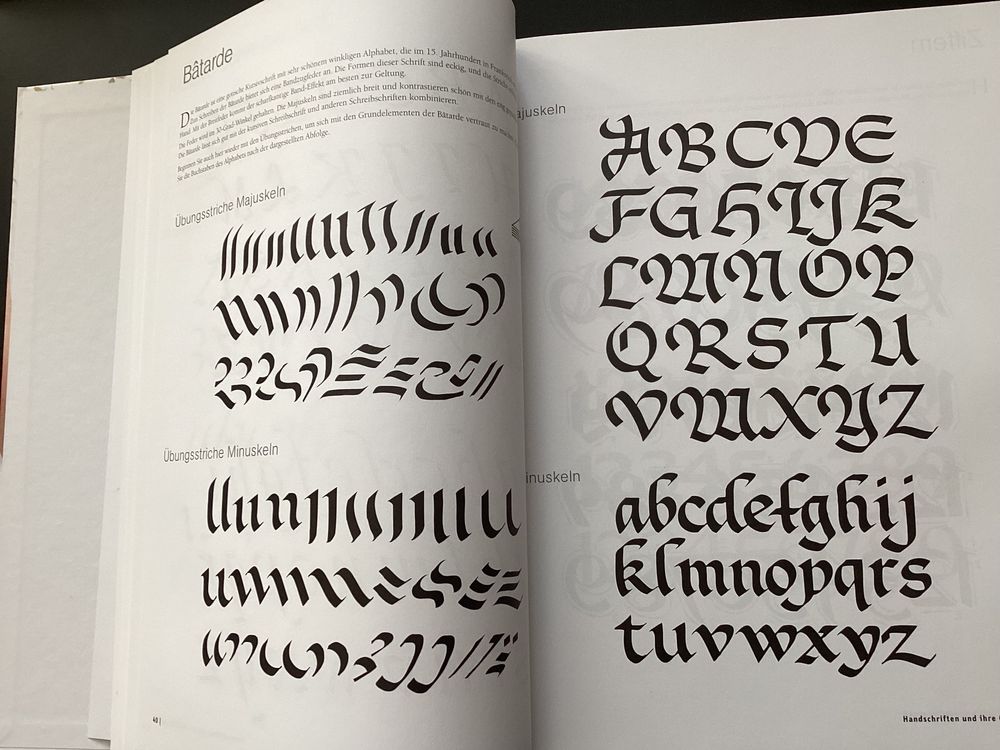 Bâtarde
Die Bâtarde ist eine gotische Kursivschrift mit sehr schönem winkligen Alphabet, die im 15. Jahrhundert in
Zum Schreiben der Bâtarde bietet sich eine Bandzugfeder an. Die Formen dieser Schrift sind eckig, und die
Hand. Mit der Breitfeder komme der scharfkantige Band-Effekt am besten zur Geltung.
Die Feder wird im 30-Grad-Winkel gehalten. Die Majuskeln sind ziemlich breit und kontrastieren schön mit den eng
Die Bâtarde lässt sich gut mit der kursiven Schreibschrift und anderen Schreibschriften kombinieren.
Beginnen Sie auch hier wieder mit den Übungsstrichen, um sich mit den Grundelementen der Bâtarde vertraut zu
Sie die Buchstaben des Alphabets nach der dargestellten Abfolge.
Übungsstriche Majuskeln
Übungsstriche Minuskeln
40 |
ajuskeln
ABCDE
FGHIJK
LMNOP
QRSTU
VWXYZ
inuskeln
abcdefghij
klmnopqrs
tuvwxyz
Handschriften und ihre
Ziffern